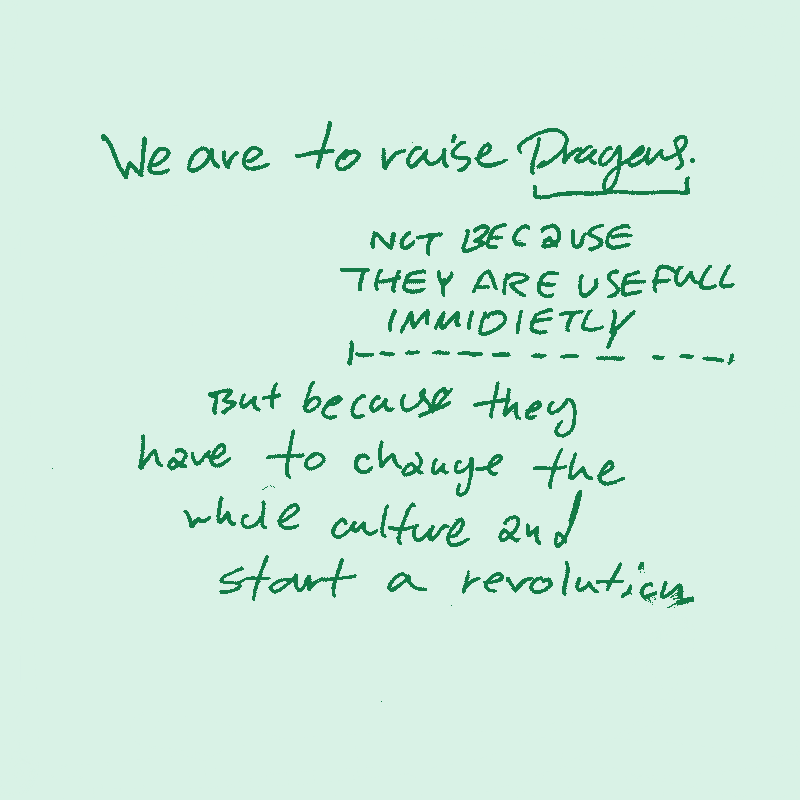 We are to raise Dragons.
NOT BECAUSE
THEY ARE USEFULL
IMMIDIETLY
But because they
have to change the
whole culture and
start a revolution